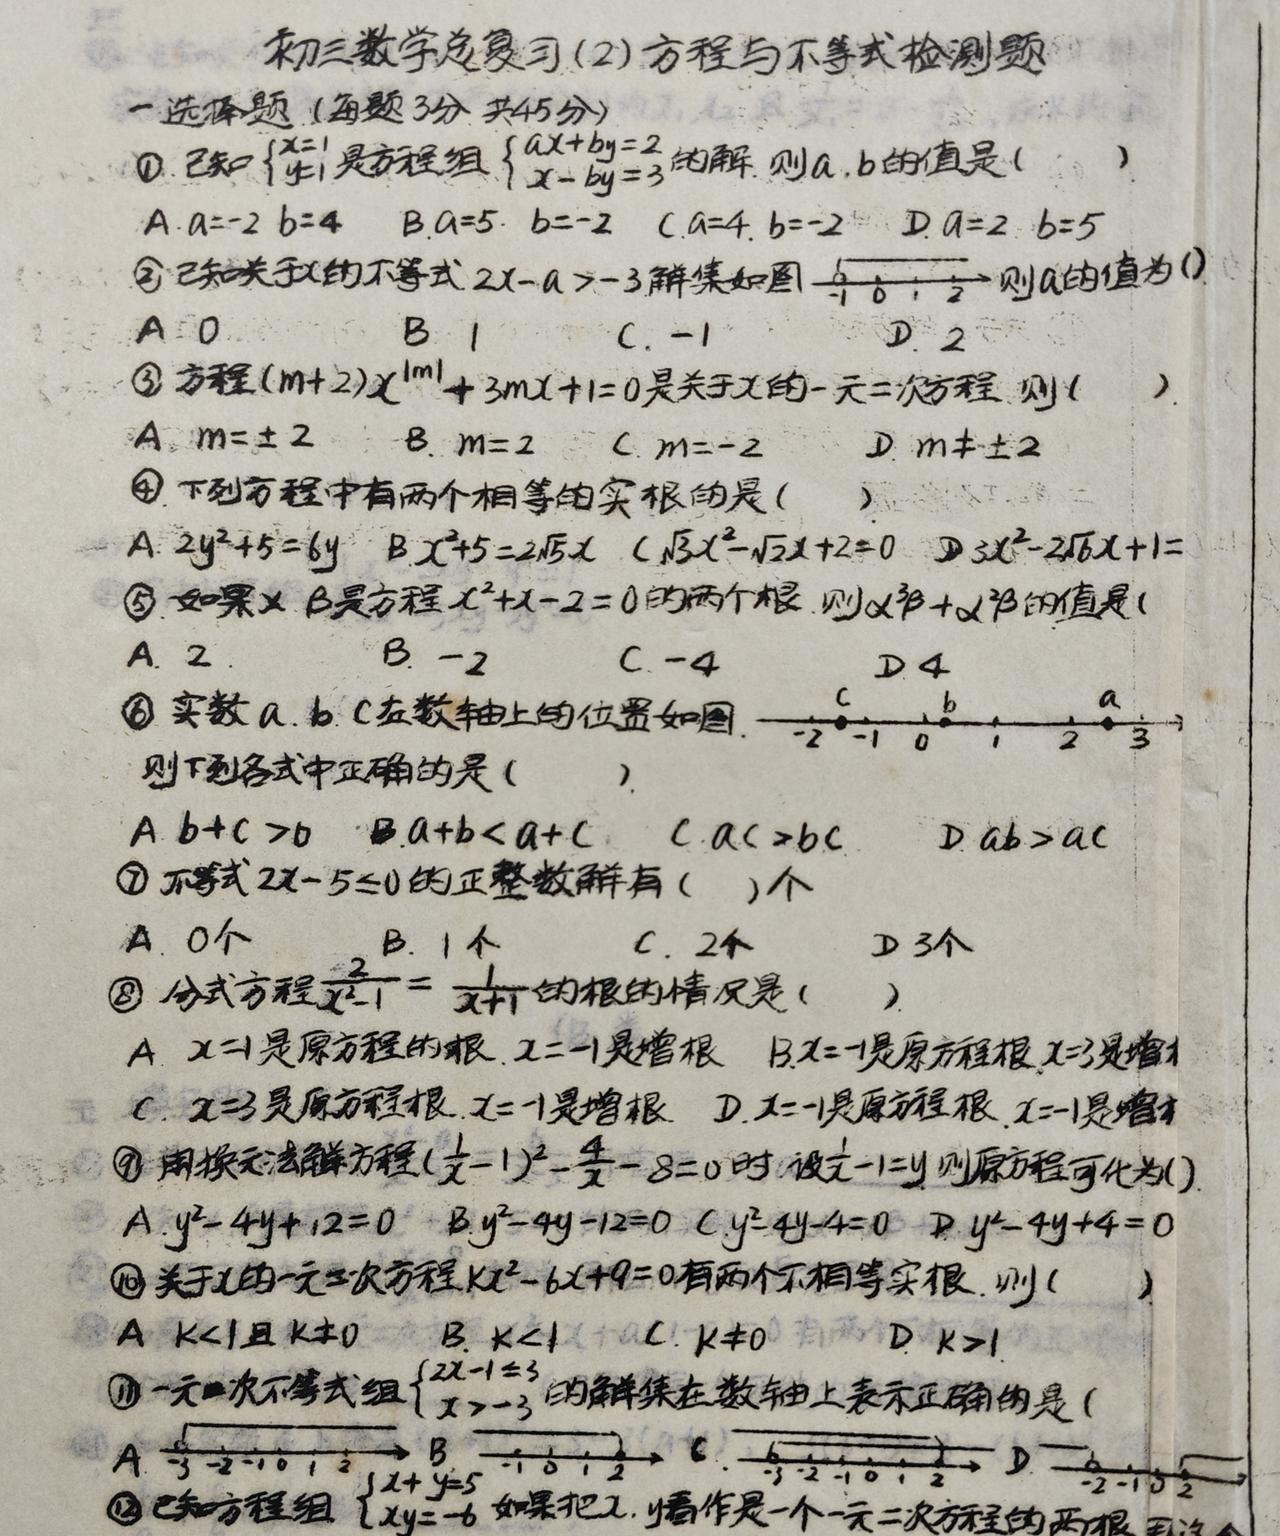 初三数学总复习(2)方程与不等式检测题
一 选择题 (每题3分 共45分)
① 已知{x=1 y=1 是方程组 {ax+by=2 x-by=3 的解. 则a.b的值是( )
A.a=-2 b=4 B.a=5. b=-2 C.a=4. b=-2 D.a=2. b=5
② 已知关于x的不等式 2x-a>-3解集如图 -1 0 1 2 则a的值为()
A 0 B 1 C. -1 D. 2
③ 方程(m+2)x^|m|+3mx+1=0是关于x的一元二次方程 则( ).
A m=±2 B. m=2 C. m=-2 D. m≠±2
④. 下列方程中有两个相等的实根的是( )
A. 2y²+5=6y B.x²+5=2√5x C √3x²-√2x+2=0 D 3x²-2√6x+1=
⑤. 如果α β是方程x²+x-2=0的两个根. 则α³β+α²β的值是(
A. 2. B. -2 C. -4 D 4
⑥ 实数a.b.C在数轴上的位置如图. -2 C -1 0 b 1 2 a 3
则下列各式中正确的是( ).
A b+C>0 B.a+b<a+C C.aC>bC. D.ab>aC
⑦ 不等式2x-5≤0的正整数解有( )个
A. 0个 B. 1个 C. 2个 D 3个
⑧ 分式方程2/(x²-1)=1/(x+1)的根的情况是( )
A. x=1是原方程的根. x=-1是增根 B.x=-1是原方程根.x=3是增
C. x=3是原方程根.x=-1是增根 D.x=-1是原方程根.x=-1是增
⑨ 用换元法解方程(1/x-1)²-4/x-8=0时.设1/x-1=y 则原方程可化为().
A.y²-4y+12=0 B.y²-4y-12=0 C.y²-4y-4=0 D.y²-4y+4=0
⑩ 关于x的一元二次方程kx²-6x+9=0有两个不相等实根.则( )
A K<1且K≠0 B. K<1 C. K≠0 D. K>1
⑪ 一元一次不等式组{2x-1≤3 x>-3 的解集在数轴上表示正确的是(
A -3 -2 -1 0 1 2 B. -1 0 1 2 C. -3 -2 -1 0 1 2 D. -2 -1 0 2
⑫ 已知方程组 {x+y=5 xy=-6 如果把x.y看作是一个一元二次方程的两根